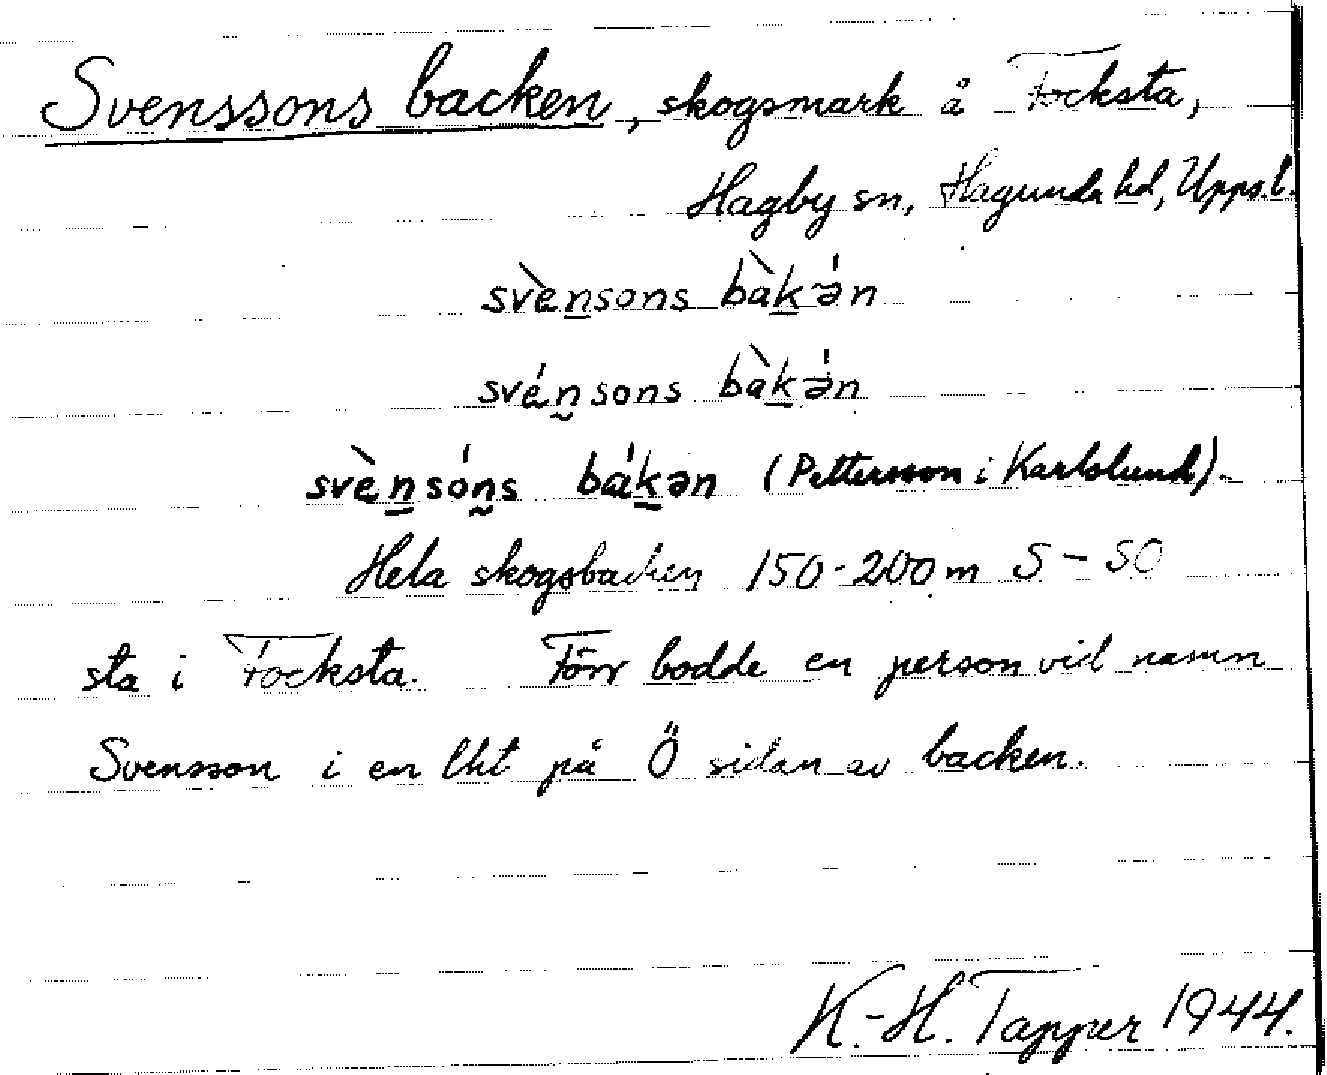 Svenssons backen, skogsmark å Focksta,
Hagby sn, Hagunda hd, Upps. l.
svènsons bàkə́n
svénsons bàkə́n
svènsóns bákən (Pettersson i Karlslund).
Hela skogsbacken 150-200 m S – SO
sta i Focksta. Förr bodde en person vid namn
Svensson i en lht på Ö sidan av backen.
K.-H. Tapper 1944.